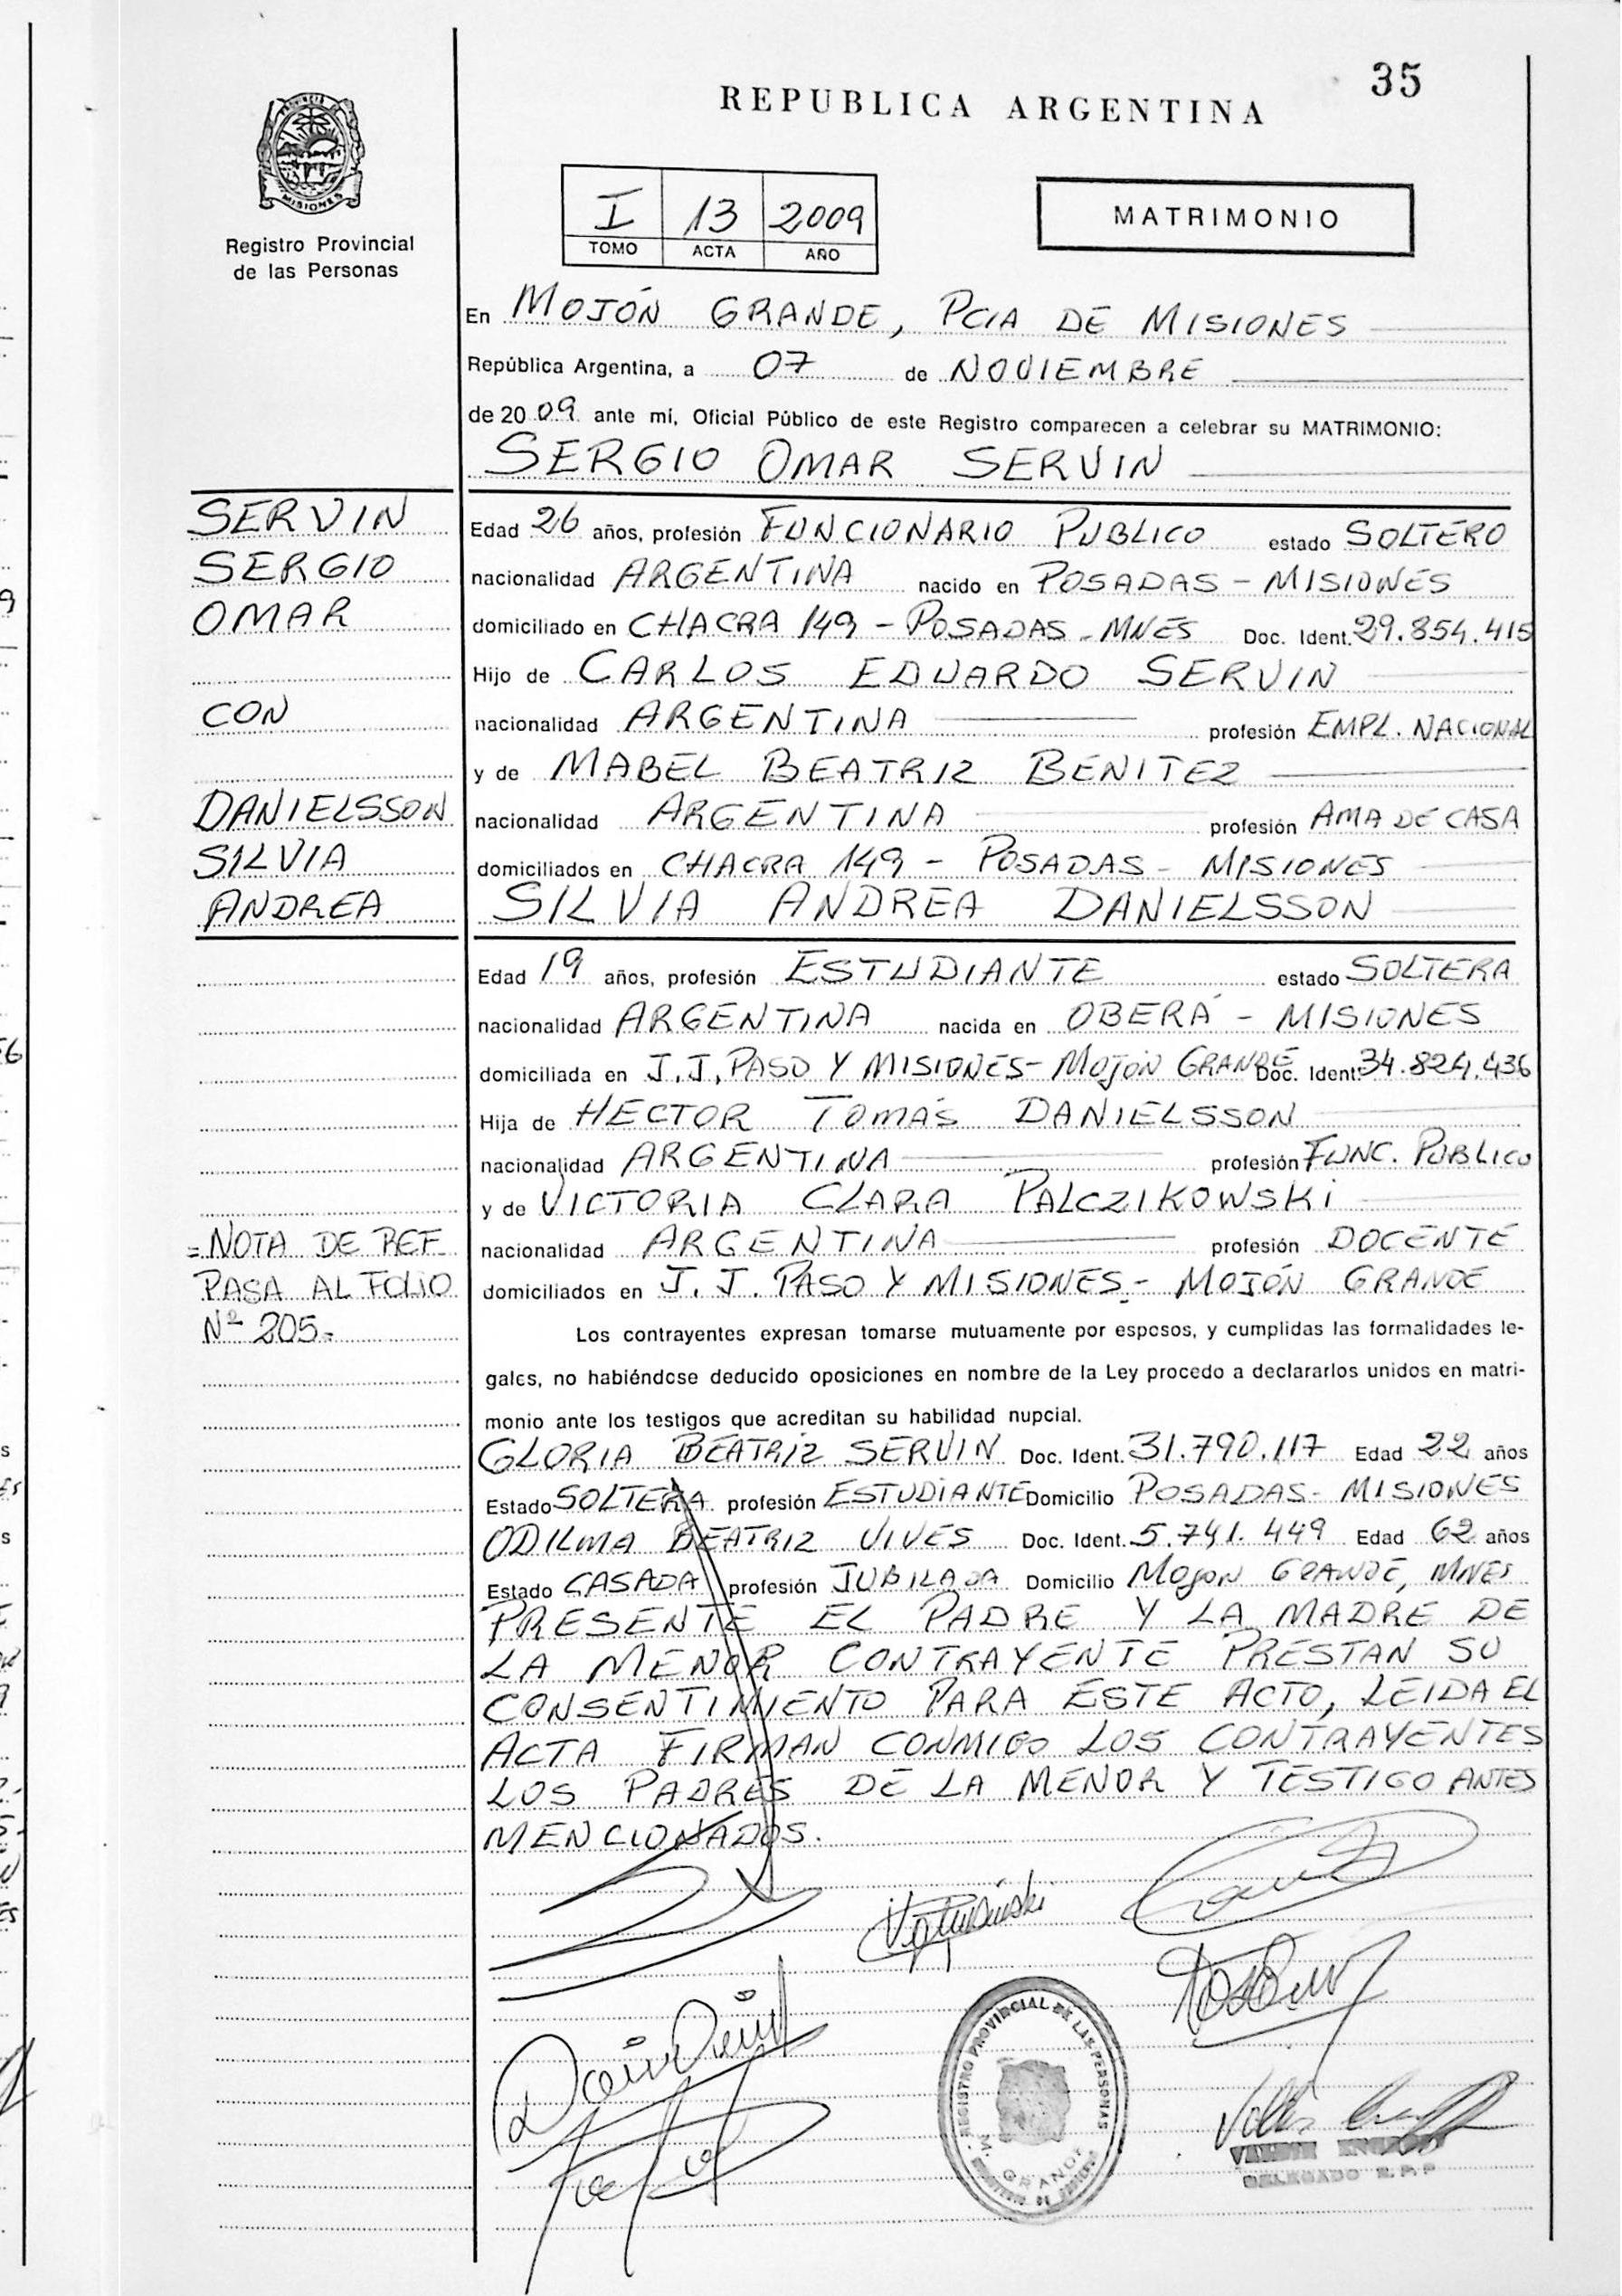 35
REPUBLICA ARGENTINA
PROVINCIA DE
MISIONES
Registro Provincial
de las Personas
I 13 2009
TOMO ACTA AÑO
MATRIMONIO
En MOJÓN GRANDE, PCIA DE MISIONES
República Argentina, a 07 de NOVIEMBRE
de 2009 ante mí, Oficial Público de este Registro comparecen a celebrar su MATRIMONIO:
SERGIO OMAR SERVIN
SERVIN
SERGIO
OMAR
CON
DANIELSSON
SILVIA
ANDREA
Edad 26 años, profesión FUNCIONARIO PUBLICO estado SOLTERO
nacionalidad ARGENTINA nacido en POSADAS - MISIONES
domiciliado en CHACRA 149 - POSADAS - MNES Doc. Ident. 29.854.415
Hijo de CARLOS EDUARDO SERVIN
nacionalidad ARGENTINA profesión EMPL. NACIONAL
y de MABEL BEATRIZ BENITEZ
nacionalidad ARGENTINA profesión AMA DE CASA
domiciliados en CHACRA 149 - POSADAS - MISIONES
SILVIA ANDREA DANIELSSON
Edad 19 años, profesión ESTUDIANTE estado SOLTERA
nacionalidad ARGENTINA nacida en OBERÁ - MISIONES
domiciliada en J.J. PASO Y MISIONES - MOJÓN GRANDE Doc. Ident. 34.824.436
Hija de HECTOR TOMÁS DANIELSSON
nacionalidad ARGENTINA profesión FUNC. PUBLICO
y de VICTORIA CLARA PALCZIKOWSKI
nacionalidad ARGENTINA profesión DOCENTE
domiciliados en J. J. PASO Y MISIONES - MOJÓN GRANDE
= NOTA DE REF.
PASA AL FOLIO
Nº 205.-
Los contrayentes expresan tomarse mutuamente por esposos, y cumplidas las formalidades le-
gales, no habiéndose deducido oposiciones en nombre de la Ley procedo a declararlos unidos en matri-
monio ante los testigos que acreditan su habilidad nupcial.
GLORIA BEATRIZ SERVIN Doc. Ident. 31.790.117 Edad 22 años
Estado SOLTERA profesión ESTUDIANTE Domicilio POSADAS - MISIONES
ODILMA BEATRIZ VIVES Doc. Ident. 5.741.449 Edad 62 años
Estado CASADA profesión JUBILADA Domicilio MOJON GRANDE, MNES
PRESENTE EL PADRE Y LA MADRE DE
LA MENOR CONTRAYENTE PRESTAN SU
CONSENTIMIENTO PARA ESTE ACTO, LEIDA EL
ACTA FIRMAN CONMIGO LOS CONTRAYENTES
LOS PADRES DE LA MENOR Y TESTIGO ANTES
MENCIONADOS.
REGISTRO PROVINCIAL DE LAS PERSONAS
M. GRANDE
DELEGADO R. P. P.